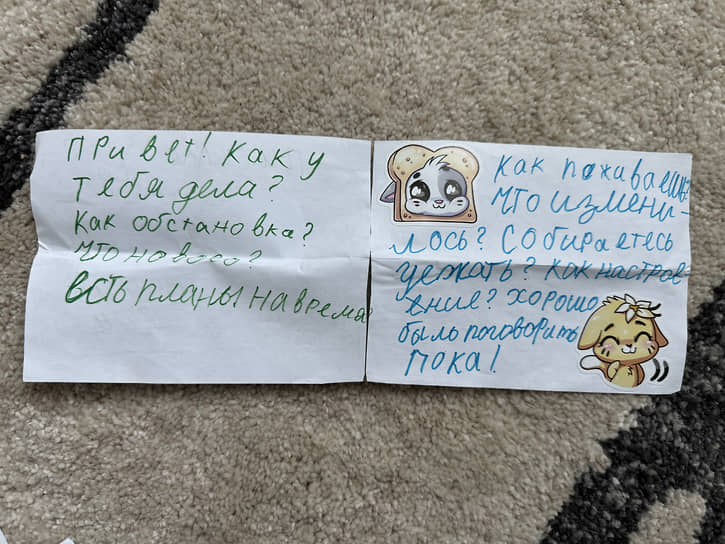 Привет! Как у
тебя дела?
Как обстановка?
Что нового?
Есть планы на время
Как поживаешь?
Что измени-
лось? Собираетесь
уезжать? Как настро-
ение? Хорошо
было поговорить
Пока!